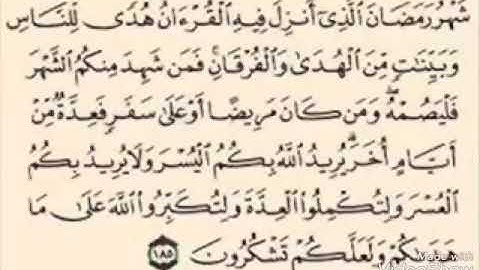 شَهْرُ رَمَضَانَ ٱلَّذِىٓ أُنزِلَ فِيهِ ٱلْقُرْءَانُ هُدًى لِّلنَّاسِ
وَبَيِّنَٰتٍ مِّنَ ٱلْهُدَىٰ وَٱلْفُرْقَانِ ۚ فَمَن شَهِدَ مِنكُمُ ٱلشَّهْرَ
فَلْيَصُمْهُ ۖ وَمَن كَانَ مَرِيضًا أَوْ عَلَىٰ سَفَرٍ فَعِدَّةٌ مِّنْ
أَيَّامٍ أُخَرَ ۗ يُرِيدُ ٱللَّهُ بِكُمُ ٱلْيُسْرَ وَلَا يُرِيدُ بِكُمُ
ٱلْعُسْرَ وَلِتُكْمِلُوا۟ ٱلْعِدَّةَ وَلِتُكَبِّرُوا۟ ٱللَّهَ عَلَىٰ مَا
هَدَىٰكُمْ وَلَعَلَّكُمْ تَشْكُرُونَ ١٨٥
Made with
VideoShow